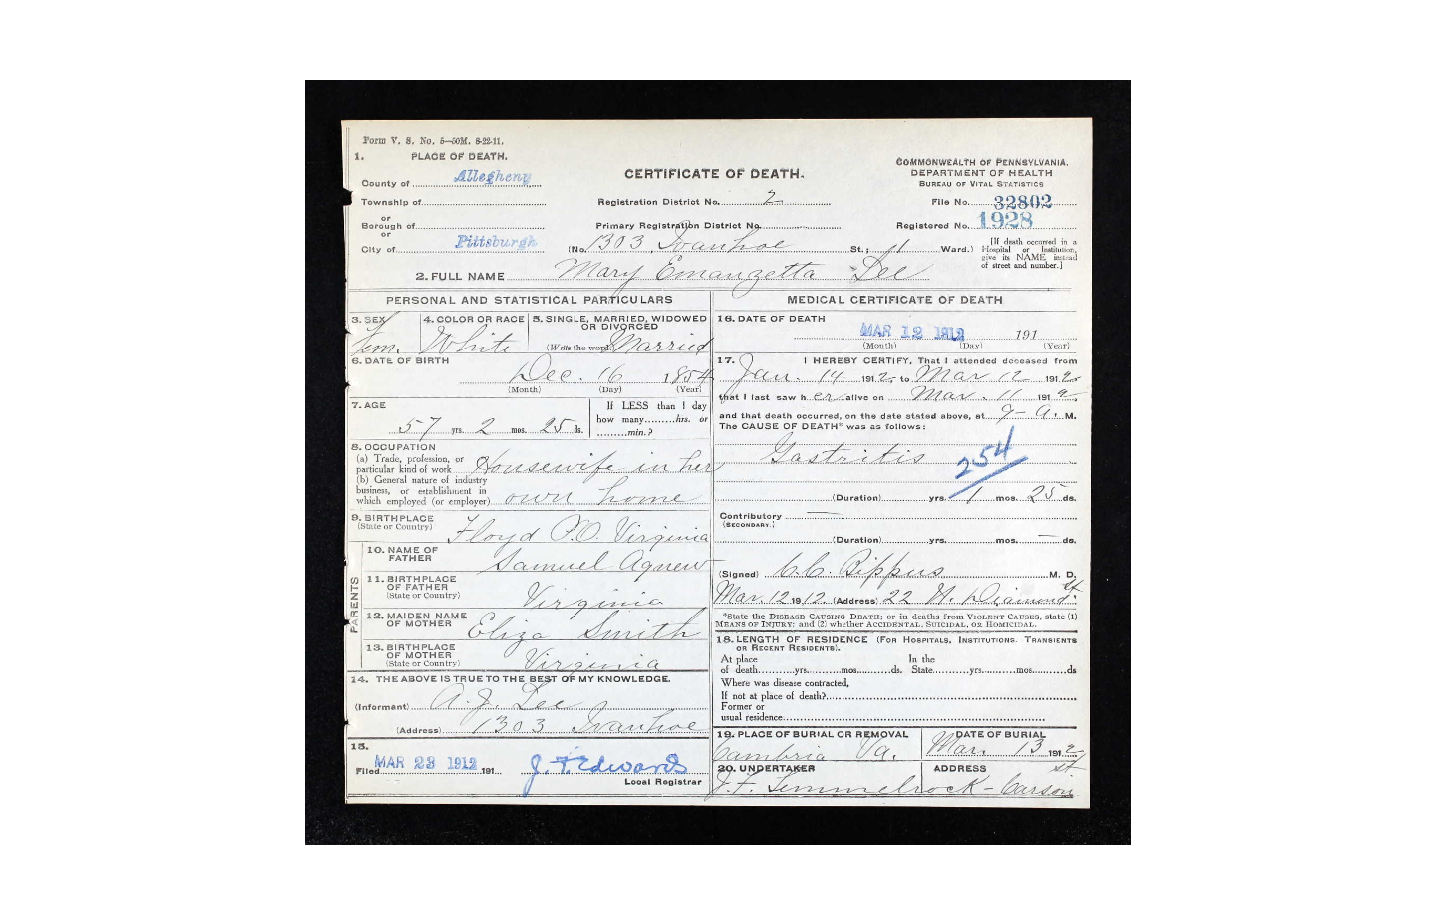 Form V. S. No. 5—50M. 8-22-11.
1. PLACE OF DEATH.
County of Allegheny
Township of
or
Borough of
or
City of Pittsburgh
CERTIFICATE OF DEATH.
Registration District No. 2
Primary Registration District No.
(No. 1303 Ivanhoe St.; 11 Ward.)
COMMONWEALTH OF PENNSYLVANIA.
DEPARTMENT OF HEALTH
BUREAU OF VITAL STATISTICS
File No. 32802
Registered No. 1928
[If death occurred in a
Hospital or Institution,
give its NAME instead
of street and number.]
2. FULL NAME Mary Emanzetta Lee
PERSONAL AND STATISTICAL PARTICULARS
3. SEX Fem.
4. COLOR OR RACE White
5. SINGLE, MARRIED, WIDOWED
OR DIVORCED
(Write the word) Married
6. DATE OF BIRTH
Dec. 16 1854
(Month) (Day) (Year)
7. AGE
57 yrs. 2 mos. 25 ds.
If LESS than 1 day
how many........hrs. or
.........min.?
8. OCCUPATION
(a) Trade, profession, or
particular kind of work Housewife in her
(b) General nature of industry
business, or establishment in
which employed (or employer) own home
9. BIRTHPLACE
(State or Country) Floyd P.O. Virginia
PARENTS
10. NAME OF
FATHER Samuel Agnew
11. BIRTHPLACE
OF FATHER
(State or Country) Virginia
12. MAIDEN NAME
OF MOTHER Eliza Smith
13. BIRTHPLACE
OF MOTHER
(State or Country) Virginia
14. THE ABOVE IS TRUE TO THE BEST OF MY KNOWLEDGE.
(Informant) A. J. Lee
(Address) 1303 Ivanhoe
15.
Filed MAR 23 1912 191 J. F. Edwards
Local Registrar
MEDICAL CERTIFICATE OF DEATH
16. DATE OF DEATH
MAR 12 1912 191
(Month) (Day) (Year)
17. I HEREBY CERTIFY, That I attended deceased from
Jan. 14 1912, to Mar 12 1912
that I last saw her alive on Mar. 11 1912
and that death occurred, on the date stated above, at 9- A. M.
The CAUSE OF DEATH* was as follows:
Gastritis
254
(Duration) yrs. 1 mos. 25 ds.
Contributory —
(SECONDARY.)
(Duration) yrs. mos. — ds.
(Signed) C. C. Rippus M. D.
Mar. 12 1912 (Address) 22 W. Diamond St.
*State the DISEASE CAUSING DEATH; or in deaths from VIOLENT CAUSES, state (1)
MEANS OF INJURY; and (2) whether ACCIDENTAL, SUICIDAL, or HOMICIDAL.
18. LENGTH OF RESIDENCE (FOR HOSPITALS, INSTITUTIONS, TRANSIENTS
OR RECENT RESIDENTS).
At place In the
of death........yrs........mos........ds. State........yrs........mos........ds
Where was disease contracted,
If not at place of death?
Former or
usual residence
19. PLACE OF BURIAL OR REMOVAL
Cambria Va.
DATE OF BURIAL
Mar. 13 1912
20. UNDERTAKER ADDRESS
J. F. Semmelrock - Carson St